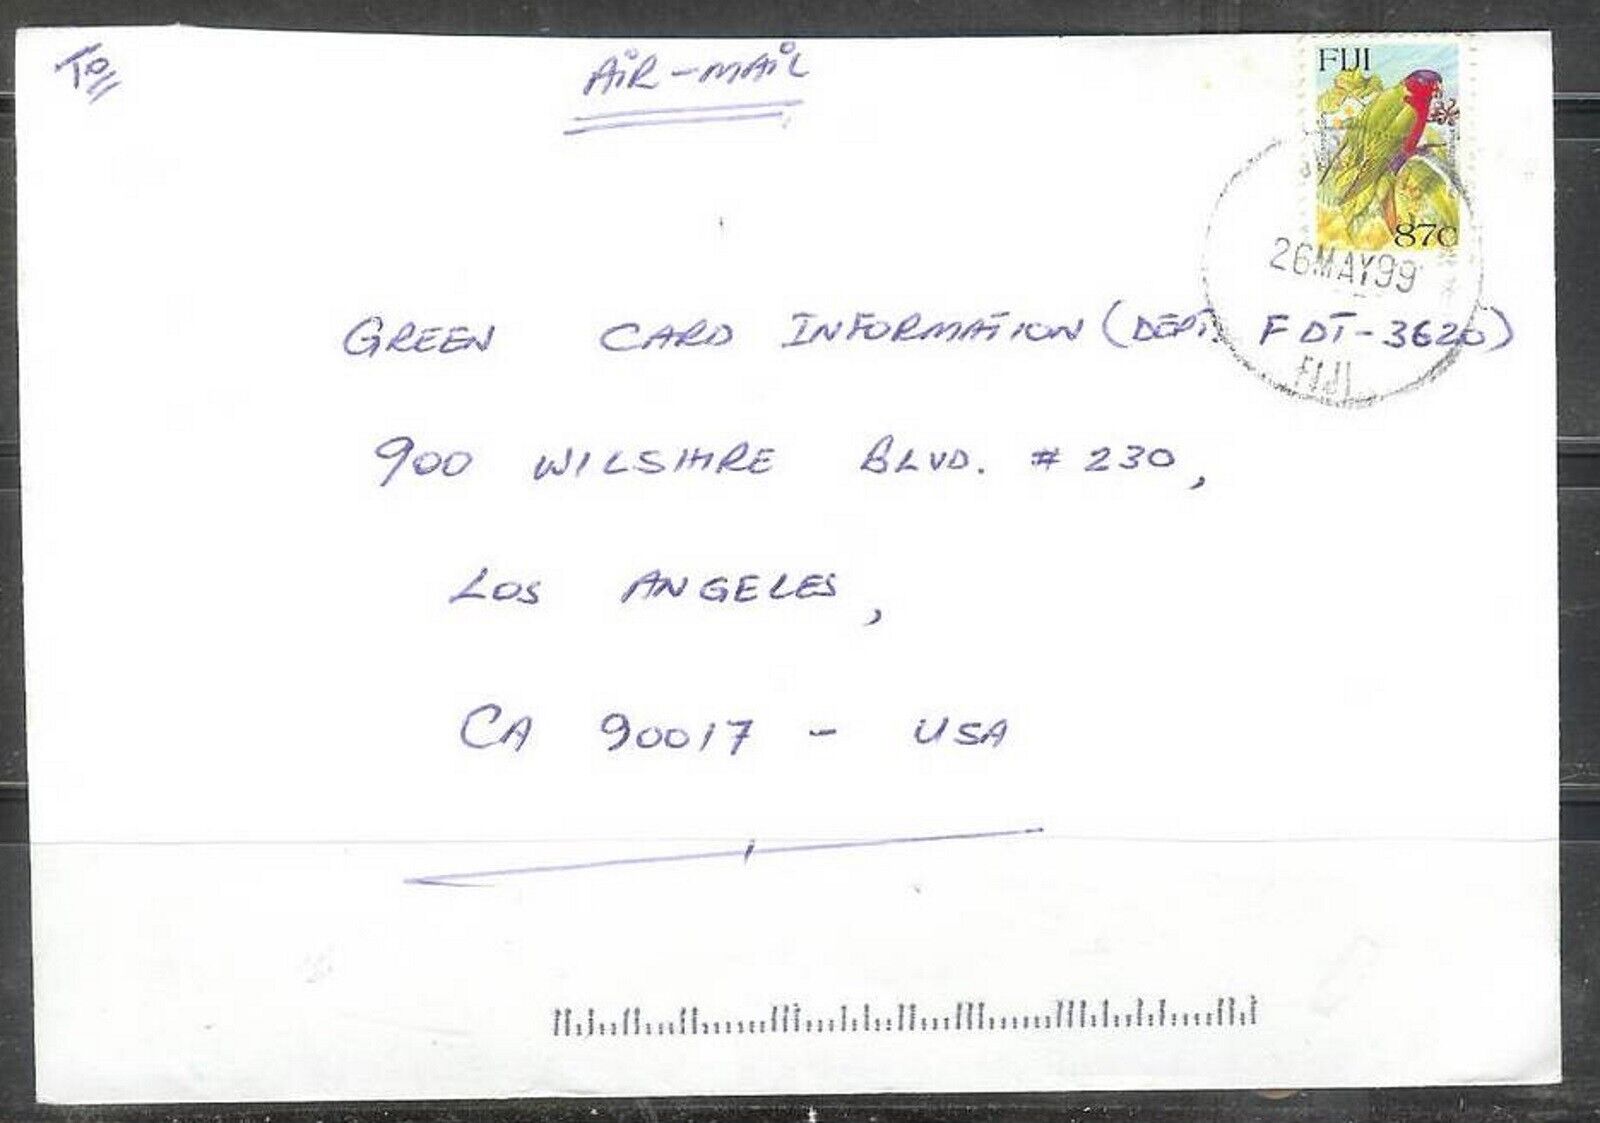 To
AIR-MAIL
FIJI
87c
26MAY99
FIJI
GREEN CARD INFORMATION (DEPT. FDT-3620)
900 WILSHIRE BLVD. # 230,
LOS ANGELES,
CA 90017 - USA